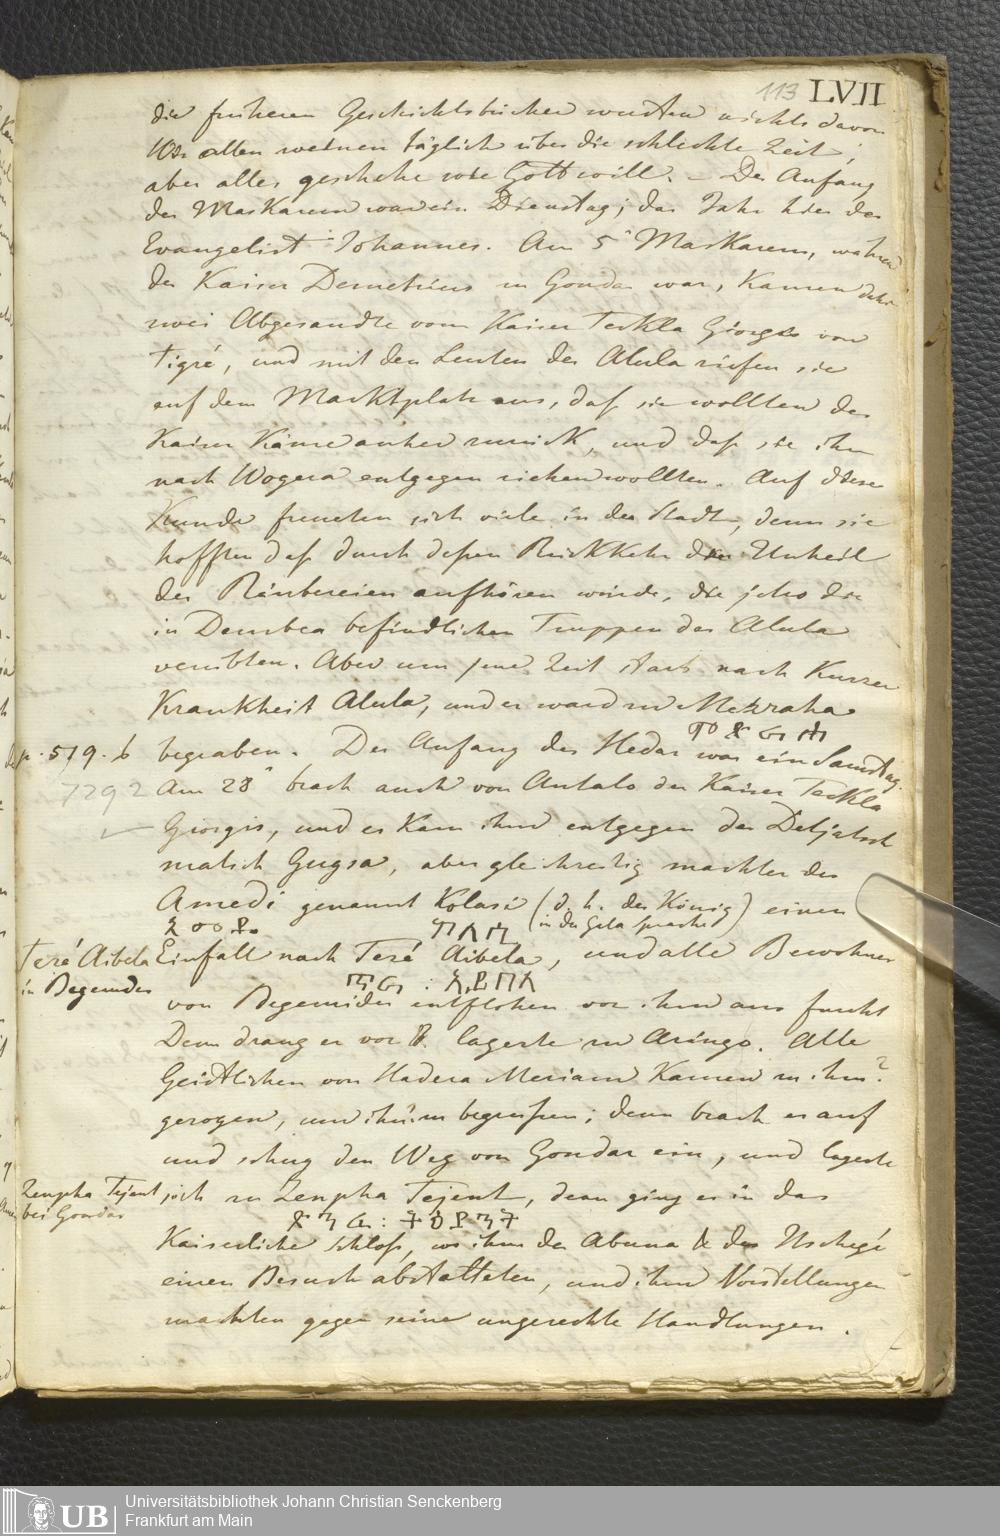 113 LVII
die früheren Geschichtsbücher wußten nichts davon
Wir allen weinen täglich über die schlechte Zeit;
aber alles geschehe wie Gott will. – Der Anfang
des Maskarem war ein Dienstag; das Jahr hies der
Evangelist Johannes. Am 5n Maskarem, während
der Kaiser Demetrius in Gondar war, kamen daher
zwei Abgesandte vom Kaiser Teckla Giorgis von
Tigré, und mit den Leuten des Alula riefen sie
auf dem Marktplatz aus, daß sie wollten der
Kaiser käme anher zurück, und daß sie ihm
nach Wogera entgegen ziehen wollten. Auf diese
Kunde freuten sich viele in der Stadt, denn sie
hofften daß durch deßen Rückkehr das Unheil
der Räubereien aufhören würde, die jetzo die
in Dembea befindlichen Truppen des Alula
verübten. Aber um jene Zeit starb nach kurzer
Krankheit Alula, und er ward zu Mezraha
መዝራሕ
p. 519. b begraben. Der Anfang des Hedar war ein Samstag.
7292 Am 28n brach auch von Antalo der Kaiser Teckla
Giorgis, und es kam ihm entgegen der Detjatsch
matsch Gugsa, aber gleichzeitig machte der
Amedi genannt Kolasi (d. h. der König) einen
(in der Gala Sprache)
Teré Aibela Einfall nach Teré Aibela, und alle Bewohner
in Begemder
von Begemider entflohen vor ihm aus furcht
Denn drang er vor & lagerte zu Aringo. Alle
Geistlichen von Hadera Meriam kamen zu ihm ?
gezogen, um ihn zu begrüßen; denn brach er auf
und schug den Weg von Gondar ein, und lagerte
Zenpha Tejent sich zu Zenpha Tejent, dean ging er in das
bei Gondar
Kaiserliche Schloß, wo ihm der Abuna & der Itschegé
einen Besuch abstatteten, und ihm Vorstellungen
machten gegen seine ungerechte Handlungen.
UB
Universitätsbibliothek Johann Christian Senckenberg
Frankfurt am Main